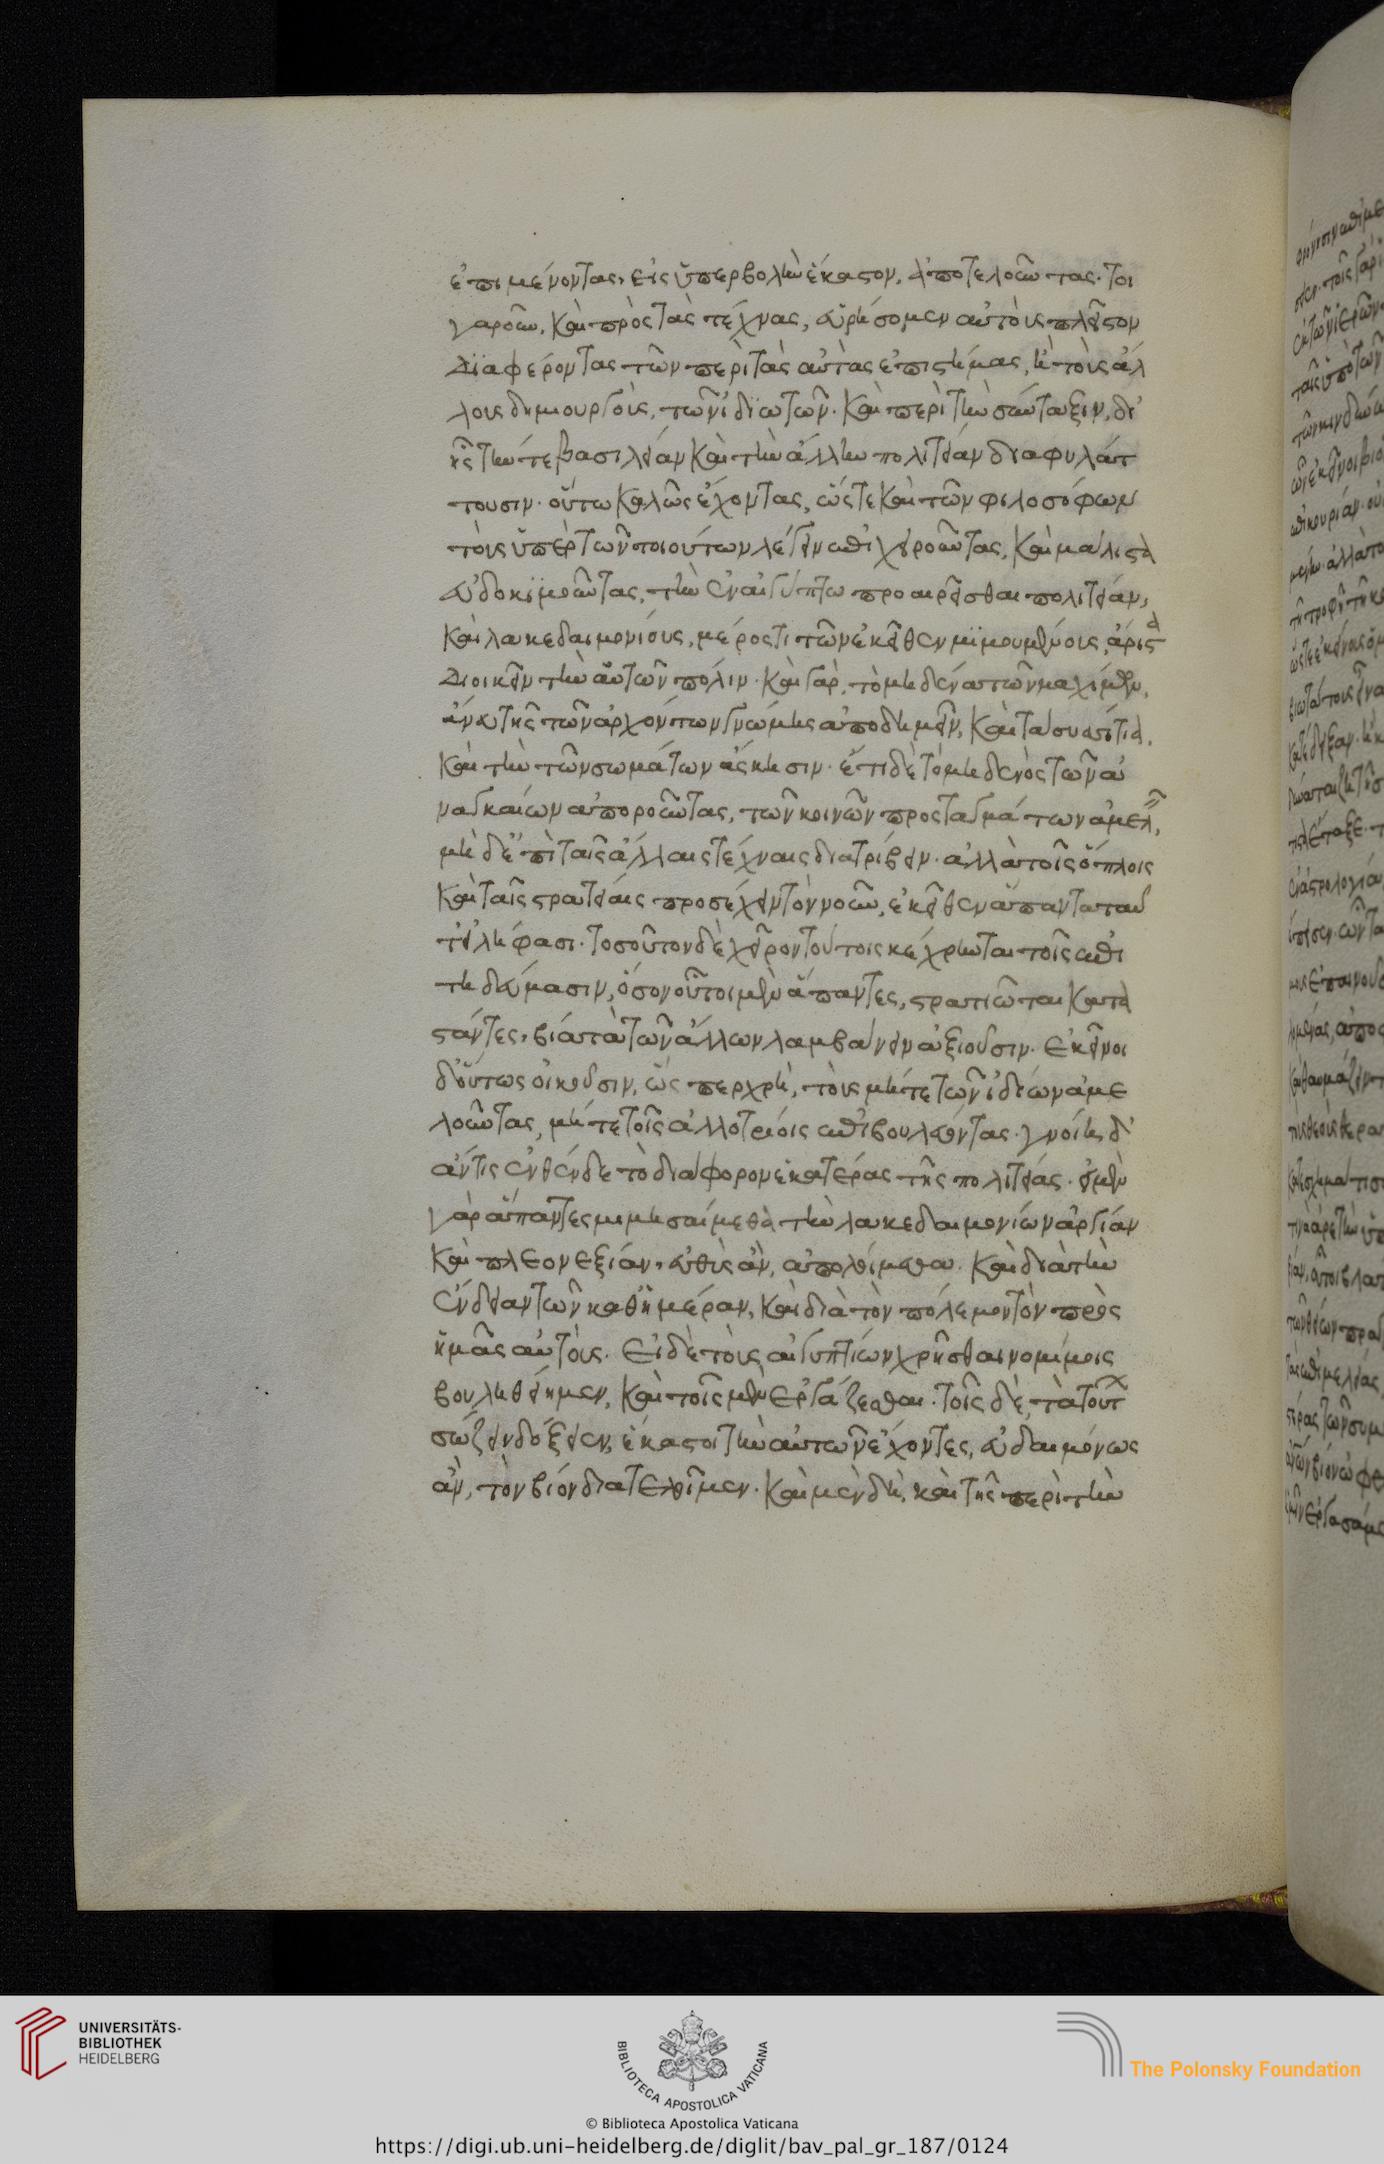 ἐπιμένοντας, εἰς ὑπερβολὴν ἕκαστον, ἀποτελοῦντας. τοι
γαροῦν, καὶ πρὸς τὰς τέχνας, εὑρήσομεν αὐτοὺς πλεῖστον
διαφέροντας τῶν περὶ τὰς αὐτὰς ἐπιστήμας, ἢ τοὺς ἄλ
λους δημιουργοὺς, τῶν ἰδιωτῶν. καὶ περὶ τὴν σύνταξιν, δι'
ἧς τήν τε βασιλείαν καὶ τὴν ἄλλην πολιτείαν διαφυλάτ
τουσιν. οὕτω καλῶς ἔχοντας, ὥστε καὶ τῶν φιλοσόφων
τοὺς ὑπὲρ τῶν τοιούτων λέγειν ἐπιχειροῦντας, καὶ μάλιστα
εὐδοκιμοῦντας, τὴν ἐν αἰγύπτω προαιρεῖσθαι πολιτείαν,
καὶ λακεδαιμονίους, μέρος τι τῶν ἐκεῖθεν μιμουμένους, ἄριστα
διοικεῖν τὴν αὑτῶν πόλιν. καὶ γὰρ, τὸ μηδένα τῶν μαχίμων,
ἄνευ τῆς τῶν ἀρχόντων γνώμης ἀποδημεῖν, καὶ τὰ συσσίτια,
καὶ τὴν τῶν σωμάτων ἄσκησιν. ἔτι δὲ τὸ μηδενὸς τῶν ἀ
ναγκαίων ἀποροῦντας, τῶν κοινῶν προσταγμάτων ἀμελεῖν,
μηδ' ἐπὶ ταῖς ἄλλαις τέχναις διατρίβειν. ἀλλὰ τοῖς ὅπλοις
καὶ ταῖς στρατείαις προσέχειν τὸν νοῦν, ἐκεῖθεν ἅπαντα ταῦ
τ' εἰλήφασι. τοσοῦτον δὲ χεῖρον τούτοις κέχρηνται τοῖς ἐπι
τηδεύμασιν, ὅσον οὗτοι μὲν ἅπαντες, στρατιῶται κατα
στάντες, βία τὰ τῶν ἄλλων λαμβάνειν ἀξιοῦσιν. ἐκεῖνοι
δ' οὕτως οἰκοῦσιν, ὥσπερ χρὴ, τοὺς μήτε τῶν ἰδίων ἀμε
λοῦντας, μήτε τοῖς ἀλλοτρίοις ἐπιβουλεύοντας. γνοίη δ'
ἄν τις ἐνθένδε τὸ διάφορον ἑκατέρας τῆς πολιτείας. εἰ μὲν
γὰρ ἅπαντες μιμησαίμεθα τὴν λακεδαιμονίων ἀργίαν
καὶ πλεονεξίαν, εὐθὺς ἂν, ἀπολοίμεθα. καὶ διὰ τὴν
ἔνδειαν τῶν καθ' ἡμέραν, καὶ διὰ τὸν πόλεμον τὸν πρὸς
ἡμᾶς αὐτούς. Εἰ δὲ τοῖς αἰγυπτίων χρῆσθαι νομίμοις
βουληθείημεν, καὶ τοῖς μὲν ἐργάζεσθαι. τοῖς δὲ, τὰ τούτων
σώζειν δόξειεν, ἕκαστοι τὴν αὑτῶν ἔχοντες, εὐδαιμόνως
ἂν, τὸν βίον διατελοῖμεν. καὶ μὲν δὴ, καὶ τῆς περὶ τὴν
UNIVERSITÄTS-
BIBLIOTHEK
HEIDELBERG
BIBLIOTECA APOSTOLICA VATICANA
The Polonsky Foundation
© Biblioteca Apostolica Vaticana
https://digi.ub.uni-heidelberg.de/diglit/bav_pal_gr_187/0124